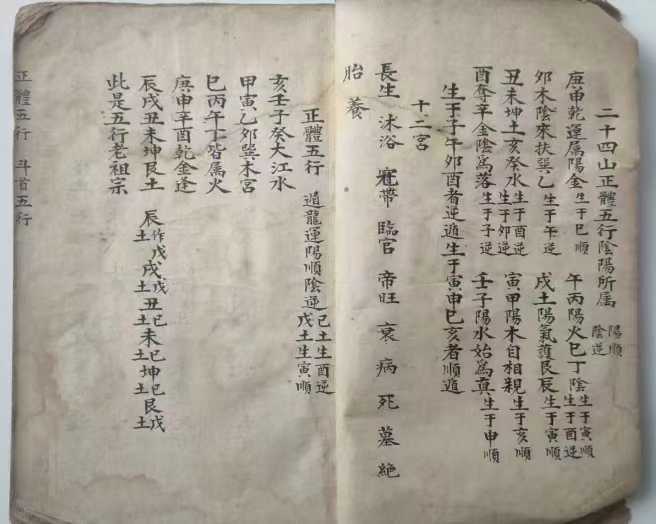 二十四山正體五行陰陽所屬 陽順 陰逆
庚申乾運属陽金生于巳順 午丙陽火巳丁陰生于寅順 生于酉逆
夘木陰來扶巽乙生于午逆 戌土陽氣𧫴艮辰生于寅順
丑未坤土亥癸水生于酉逆 生于夘逆 寅甲陽木自相親生于亥順
酉辛金陰為落生于子逆 壬子陽水始為真生于申順
生于子午夘酉者逆遁生于寅申巳亥者順遁
十二宮
長生 沐浴 冠帶 臨官 帝旺 衰 病 死 墓 絶
胎 養
正體五行 遁龍運陽順陰逆 己土生酉逆 戊土生寅順
亥壬子癸大江水
甲寅乙夘巽木宮
巳丙午丁皆属火
庚申辛酉乾金逢
辰戌丑未坤艮土 辰作戊土戌戊土丑己土未己土坤己土艮戊土
此是五行老祖宗
正體五行 斗首五行